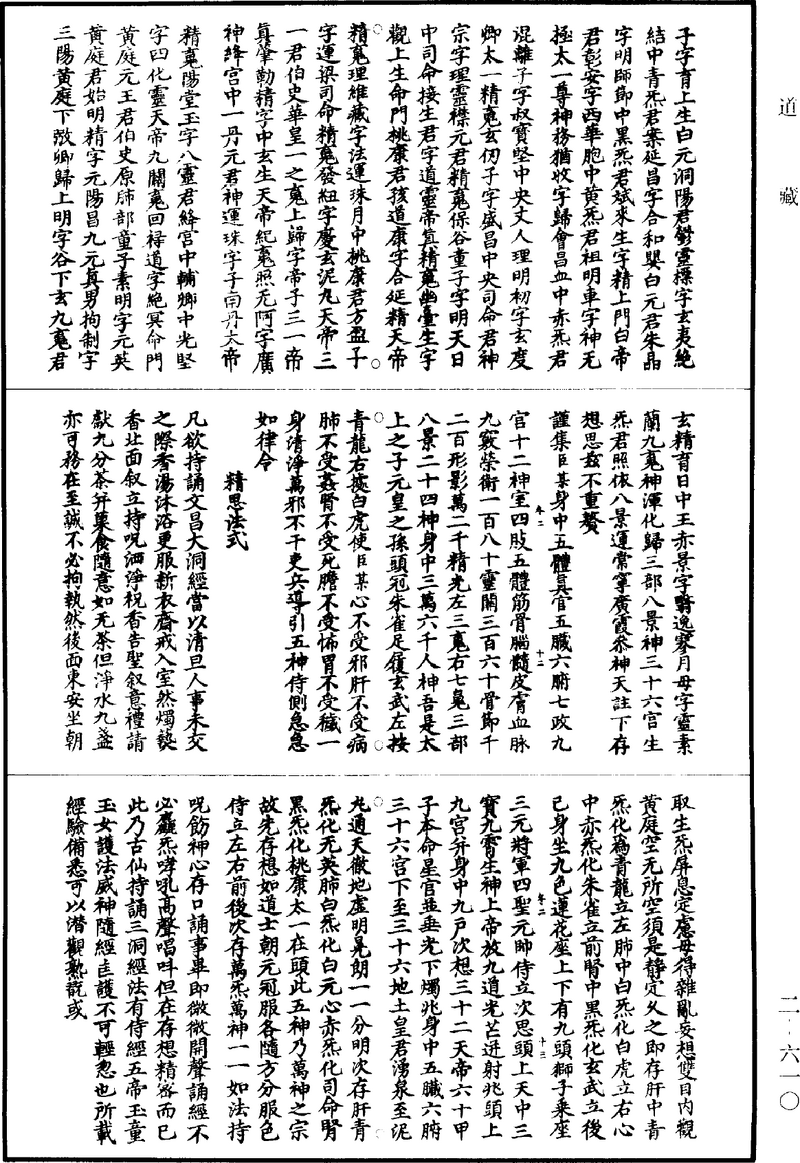 道藏
子字育上生白元洞陽君鬱靈標字玄夷絶
結中青炁君案延昌字合和嬰白元君朱晶
字明師節中黑炁君斌來生字精上門白帝
君彭安字西華胞中黃炁君祖明車字神无
極太一尊神務猶收字歸會昌血中赤炁君
混離子字叔寶堅中央丈人理明初字玄度
卿太一精䰟玄仞子字盛昌中央司命君神
宗字理靈標元君精䰟保谷童子字明天日
中司命接生君字道靈帝真精䰟幽臺生字
觀上生命門桃康君孩道康字合延精天帝
精䰟理維藏字法運珠月中桃康君方盈子
字運梁司命精䰟發紐字慶玄泥九天帝三
一君伯史華皇一之䰟上歸字帝子三一帝
真肇勒精字中玄生天帝紀䰟照无阿字廣
神絳宮中一丹元君神運珠字子南丹太帝
精䰟陽堂玉字八靈君絳宮中輔卿中光堅
字四化靈天帝九關䰟回祿道字絶冥命門
黃庭元王君伯史原肺部童子素明字元英
黃庭君始明精字元陽昌九元真男拘制字
三陽黃庭下㱾卿歸上明字谷下玄九䰟君
玄精育日中王赤景字翳逸寥月母字靈素
蘭九䰟神渾化歸三部八景神三十六宮生
炁君照依八景運常寧廣霞叅神天註下存
想思玆不重贅
謹集臣某身中五體真官五臟六腑七政九
宮十二神室四肢五體筋骨腦髓皮膚血脉
九竅榮衛一百八十靈關三百六十骨節千
二百形影萬二千精光左三䰟右七䰟三部
八景二十四神身中三萬六千人神吾是太
上之子元皇之孫頭冠朱雀足履玄武左按
青龍右據白虎使臣某心不受邪肝不受病
肺不受姦腎不受死膽不受怖胃不受穢一
身清淨萬邪不干吏兵導引五神侍側急急
如律令
精思法式
凡欲持誦文昌大洞經當以清旦人事未交
之際香湯沐浴更服新衣齋戒入室然燭爇
香北面叙立持呪洒淨祝香告聖叙意禮請
獻九分茶并棗食隨意如无茶但淨水九盞
亦可務在至誠不必拘執然後西東安坐朝
取生炁屏息定慮毋得雜亂妄想雙目内觀
黃庭空无所空須是静定久之即存肝中青
炁化為青龍立左肺中白炁化白虎立右心
中赤炁化朱雀立前腎中黑炁化玄武立後
己身坐九色蓮花座上下有九頭獅子乘座
三元將軍四聖元帥侍立次思頭上天中三
寶九霄生神上帝放九道光芒迸射兆頭上
九宮并身中九戶次想三十二天帝六十甲
子本命星官並垂光下燭兆身中五臟六腑
三十六宮下至三十六地土皇君湧泉至泥
丸通天徹地虛明晃朗一一分明次存肝青
炁化无英肺白炁化白元心赤炁化司命腎
黑炁化桃康太一在頭此五神乃萬神之宗
故先存想如道士朝元冠服各隨方分服色
侍立左右前後次存萬炁萬神一一如法持
呪飭神心存口誦事畢即微微開聲誦經不
必麤炁哮吼高聲唱呌但在存想精宻而已
此乃古仙持誦三洞經法有侍經五帝玉童
玉女護法威神隨經匡護不可輕忽也所載
經驗俻悉可以潜觀熟翫或
卷二
十二
卷二
十三
二‐六一〇